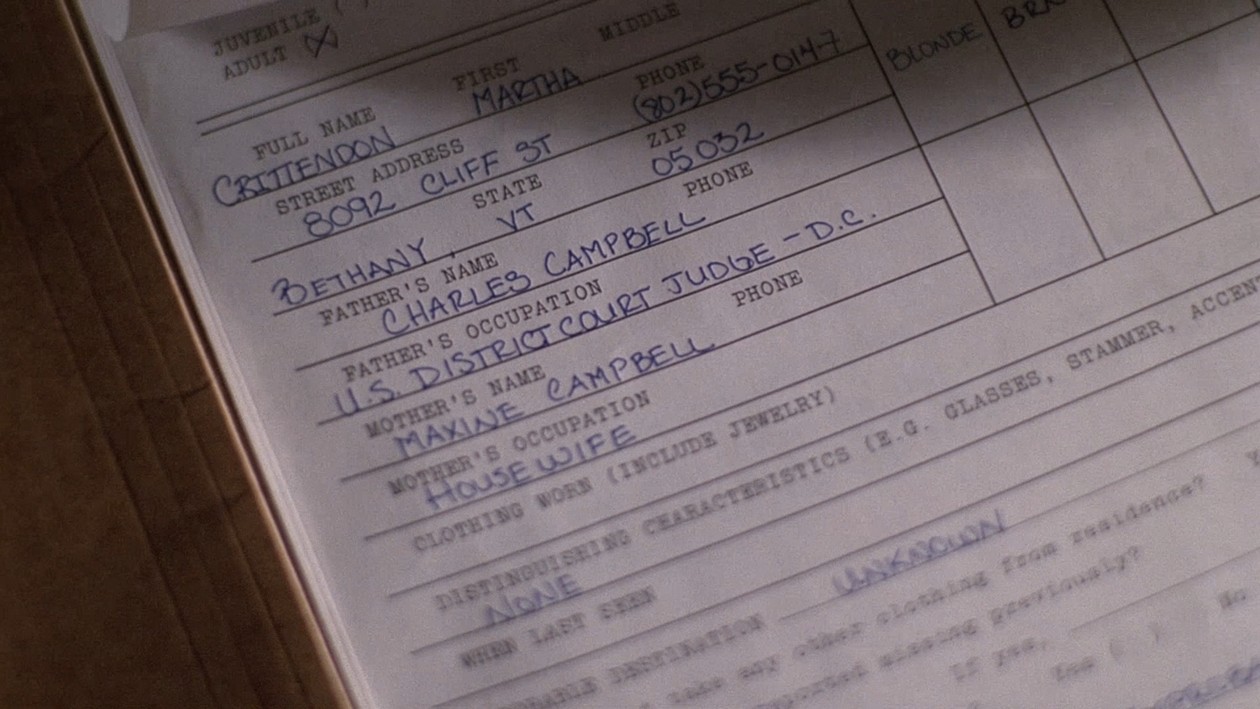 JUVENILE ( )
ADULT (X)
FIRST MIDDLE
FULL NAME MARTHA PHONE
CRITTENDON (802)555-0147 BLONDE
STREET ADDRESS ZIP
8092 CLIFF ST 05032
STATE PHONE
BETHANY, VT
FATHER'S NAME
CHARLES CAMPBELL
FATHER'S OCCUPATION
U.S. DISTRICT COURT JUDGE - D.C.
MOTHER'S NAME PHONE
MAXINE CAMPBELL
MOTHER'S OCCUPATION
HOUSEWIFE
CLOTHING WORN (INCLUDE JEWELRY)
DISTINGUISHING CHARACTERISTICS (E.G. GLASSES, STAMMER, ACCENT
NONE
WHEN LAST SEEN
DESTINATION UNKNOWN
take any other clothing from residence?
reported missing previously?
If yes,
Yes ( ) No